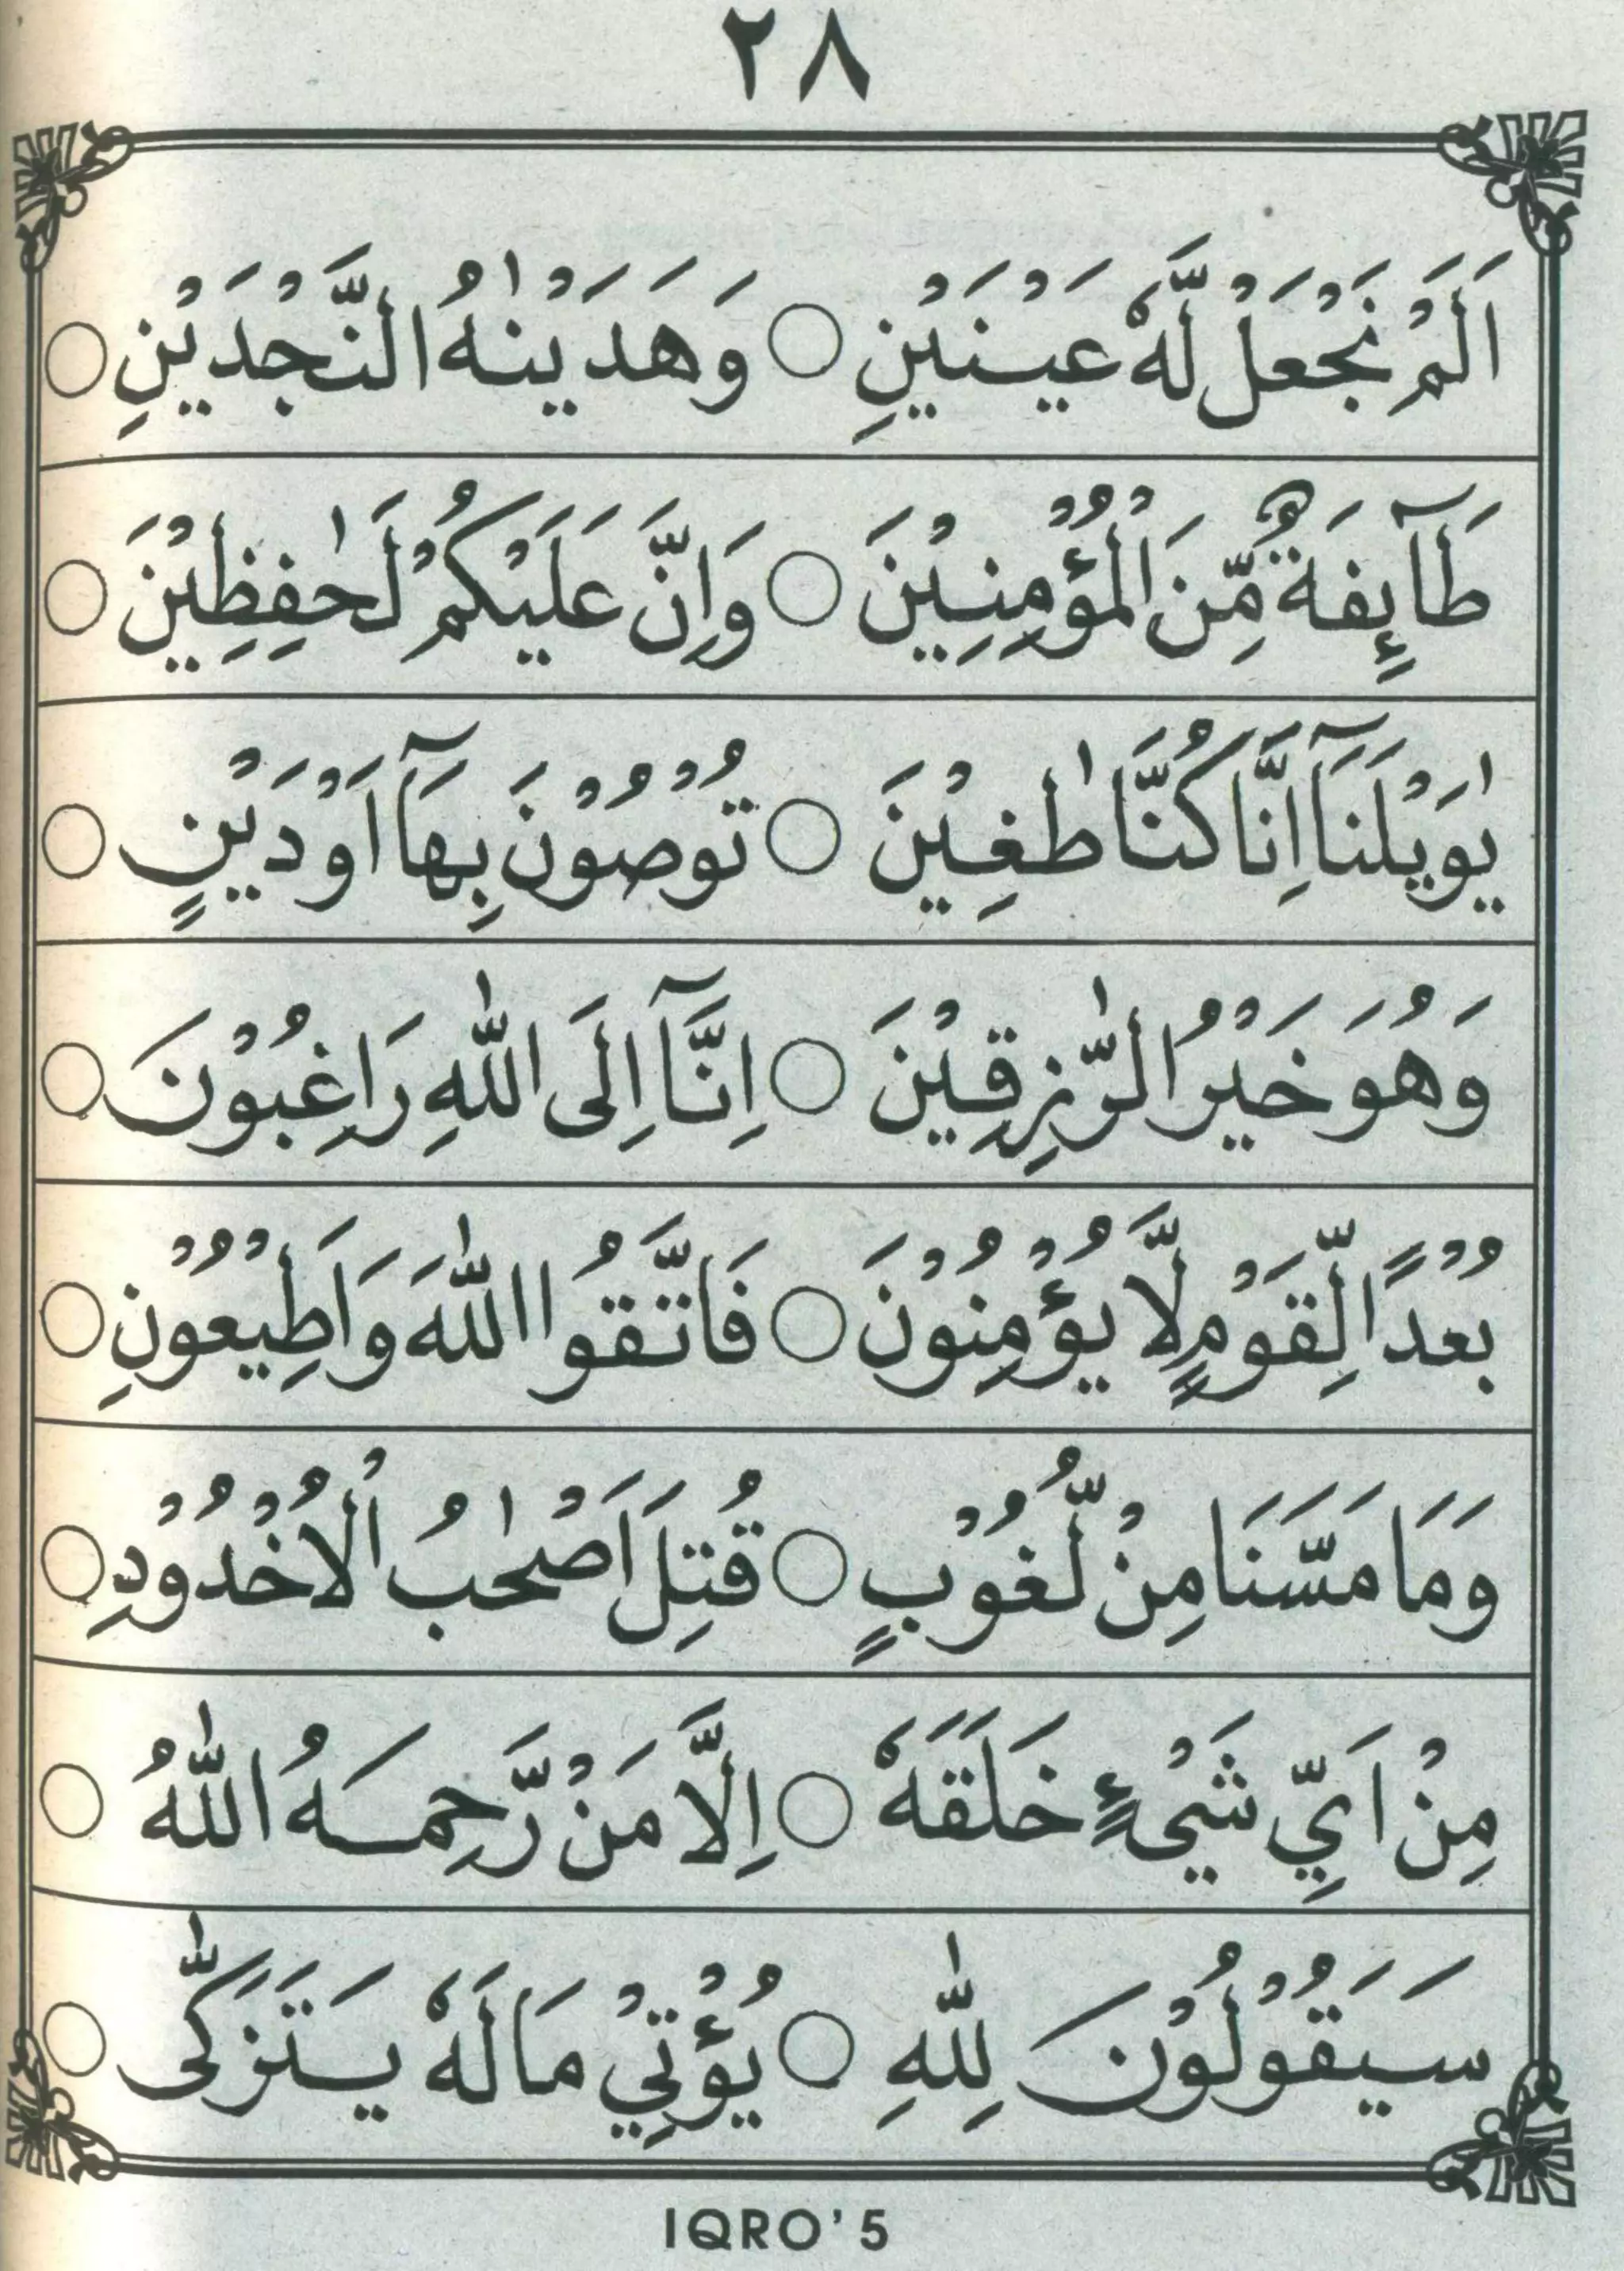 ٢٨
اَلَمْ نَجْعَلْ لَّهٗ عَيْنَيْنِ ○ وَهَدَيْنٰهُ النَّجْدَيْنِ ○
طَآئِفَةٌ مِّنَ الْمُؤْمِنِيْنَ ○ وَاِنَّ عَلَيْكُمْ لَحٰفِظِيْنَ ○
يٰوَيْلَنَآ اِنَّا كُنَّا طٰغِيْنَ ○ تُوْصُوْنَ بِهَآ اَوْ دَيْنٍ ○
وَهُوَ خَيْرُ الرّٰزِقِيْنَ ○ اِنَّآ اِلَى اللّٰهِ رَاغِبُوْنَ ○
بُعْدًا لِّقَوْمٍ لَّا يُؤْمِنُوْنَ ○ فَاتَّقُوا اللّٰهَ وَاَطِيْعُوْنِ ○
وَمَا مَسَّنَا مِنْ لُّغُوْبٍ ○ قُتِلَ اَصْحٰبُ الْاُخْدُوْدِ ○
مِنْ اَيِّ شَيْءٍ خَلَقَهٗ ○ اِلَّا مَنْ رَّحِمَهُ اللّٰهُ ○
سَيَقُوْلُوْنَ لِلّٰهِ ○ يُؤْتِيْ مَالَهٗ يَتَزَكّٰى ○
IQRO'5